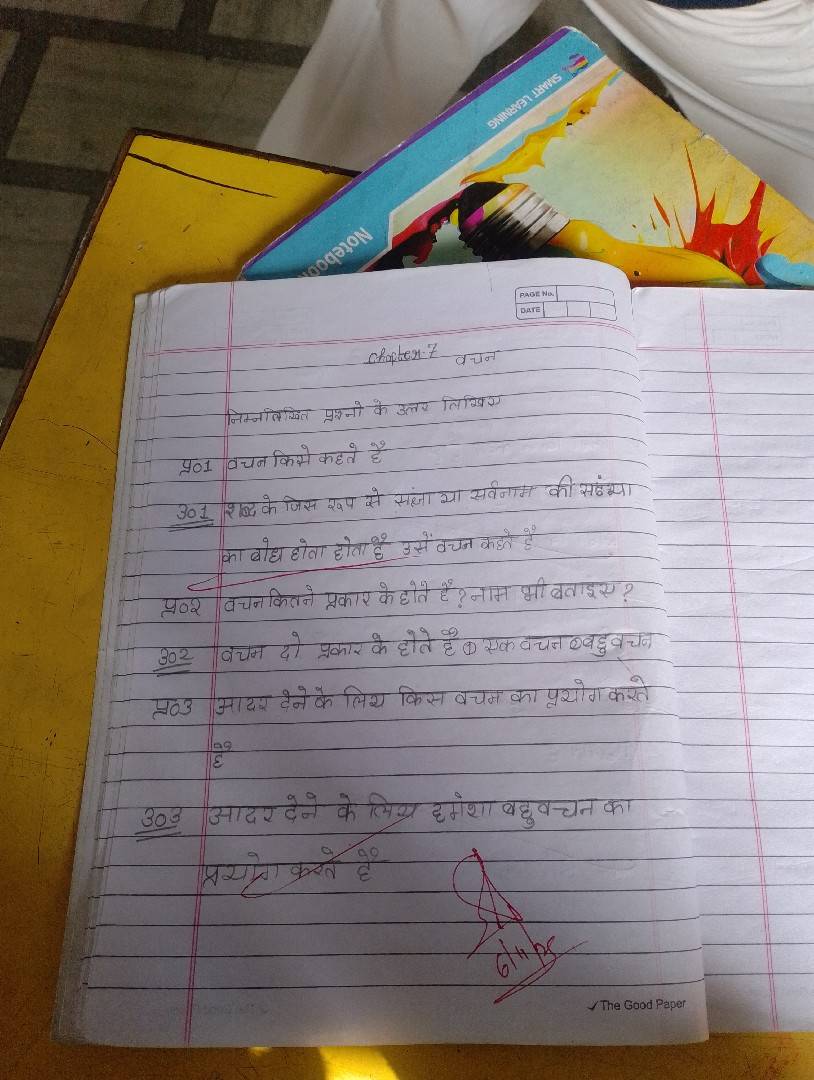 SMART LEARNING
Notebook
PAGE No.
DATE
Chapter-7 वचन
निम्नलिखित प्रश्नो के उत्तर लिखिए
प्र०1 वचन किसे कहते हैं
उ०1 शब्द के जिस रूप से संज्ञा या सर्वनाम की संख्या
का बोध होता होता हैं उसें वचन कहते हैं
प्र०२ वचन कितने प्रकार के होते हैं? नाम भी बताइए?
उ०2 वचन दो प्रकार के होते हैं ① एक वचन ② बहुवचन
प्र०3 आदर देने के लिए किस वचन का प्रयोग करते
हैं
उ०3 आदर देने के लिए हमेशा बहुवचन का
प्रयोग करते हैं
6/11/25
The Good Paper